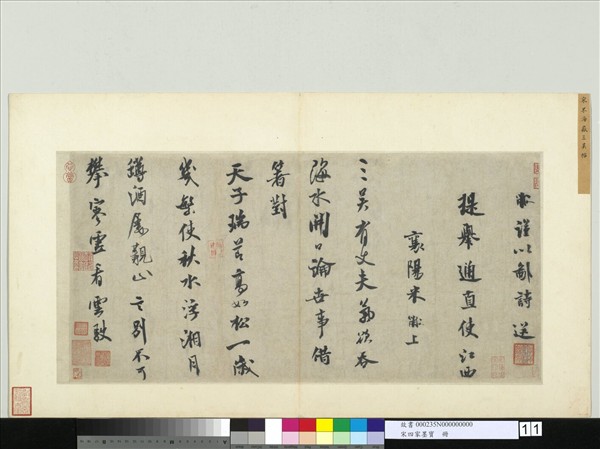 宋米海嶽三吳帖
黻謹以鄙詩送
提舉通直使江西
襄陽米黻上
三吳有丈夫氣欲吞
海水開口論世事借
箸對
天子瑞節高如松一歲
幾槃使秋水浮湘月
罇酒屬觀山之別不可
攀寥霊看雲馭
故書 000235N000000000
宋四家墨寶 冊
11